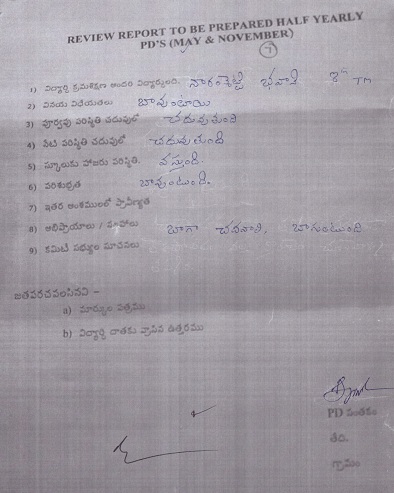 REVIEW REPORT TO BE PREPARED HALF YEARLY
PD'S (MAY & NOVEMBER)
7
1) విద్యార్థి క్రమశిక్షణ అందరి విద్యార్థులది. భవాని 8th TM
2) వినయ విధేయతలు బావుంటాయి
3) పూర్వపు పరిస్థితి చదువులో చదువుతుంది
4) నేటి పరిస్థితి చదువులో చదువుతుంది
5) స్కూలుకు హాజరు పరిస్థితి. వస్తుంది
6) పరిశుభ్రత బావుంటుంది.
7) ఇతర అంశములలో ప్రావీణ్యత
8) అభిప్రాయాలు / సూచనలు బాగా చదవాలి, బాగుంటుంది
9) కమిటీ సభ్యుల సూచనలు
జతపరచవలసినవి -
a) మార్కుల పత్రము
b) విద్యార్థి దాతకు వ్రాసిన ఉత్తరము
PD సంతకం
తేది.
గ్రామం